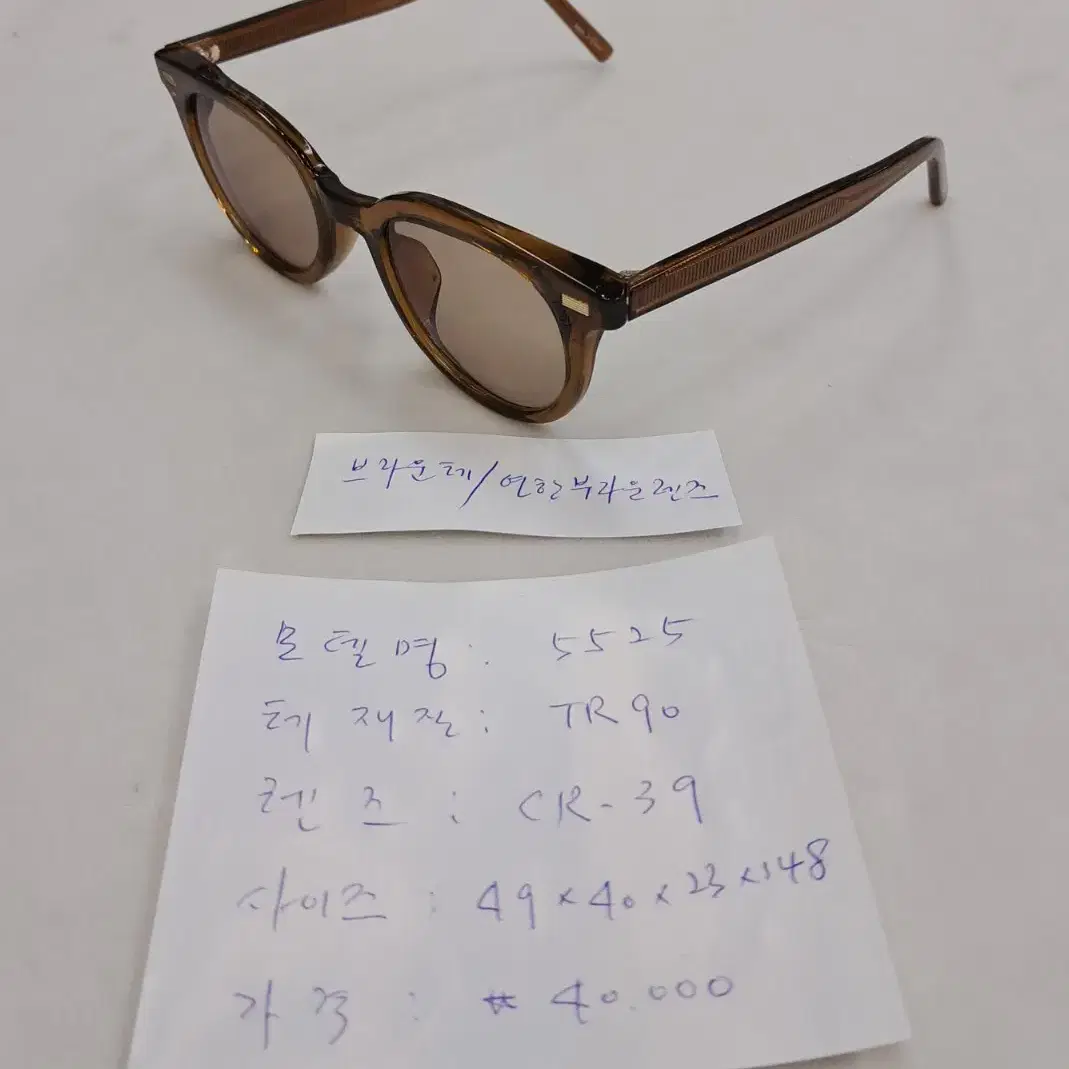 브라운테/연한부라운렌즈
모델명: 5525
테 재질: TR90
렌즈: CR-39
사이즈: 49×40×23×148
가격: ₩40.000